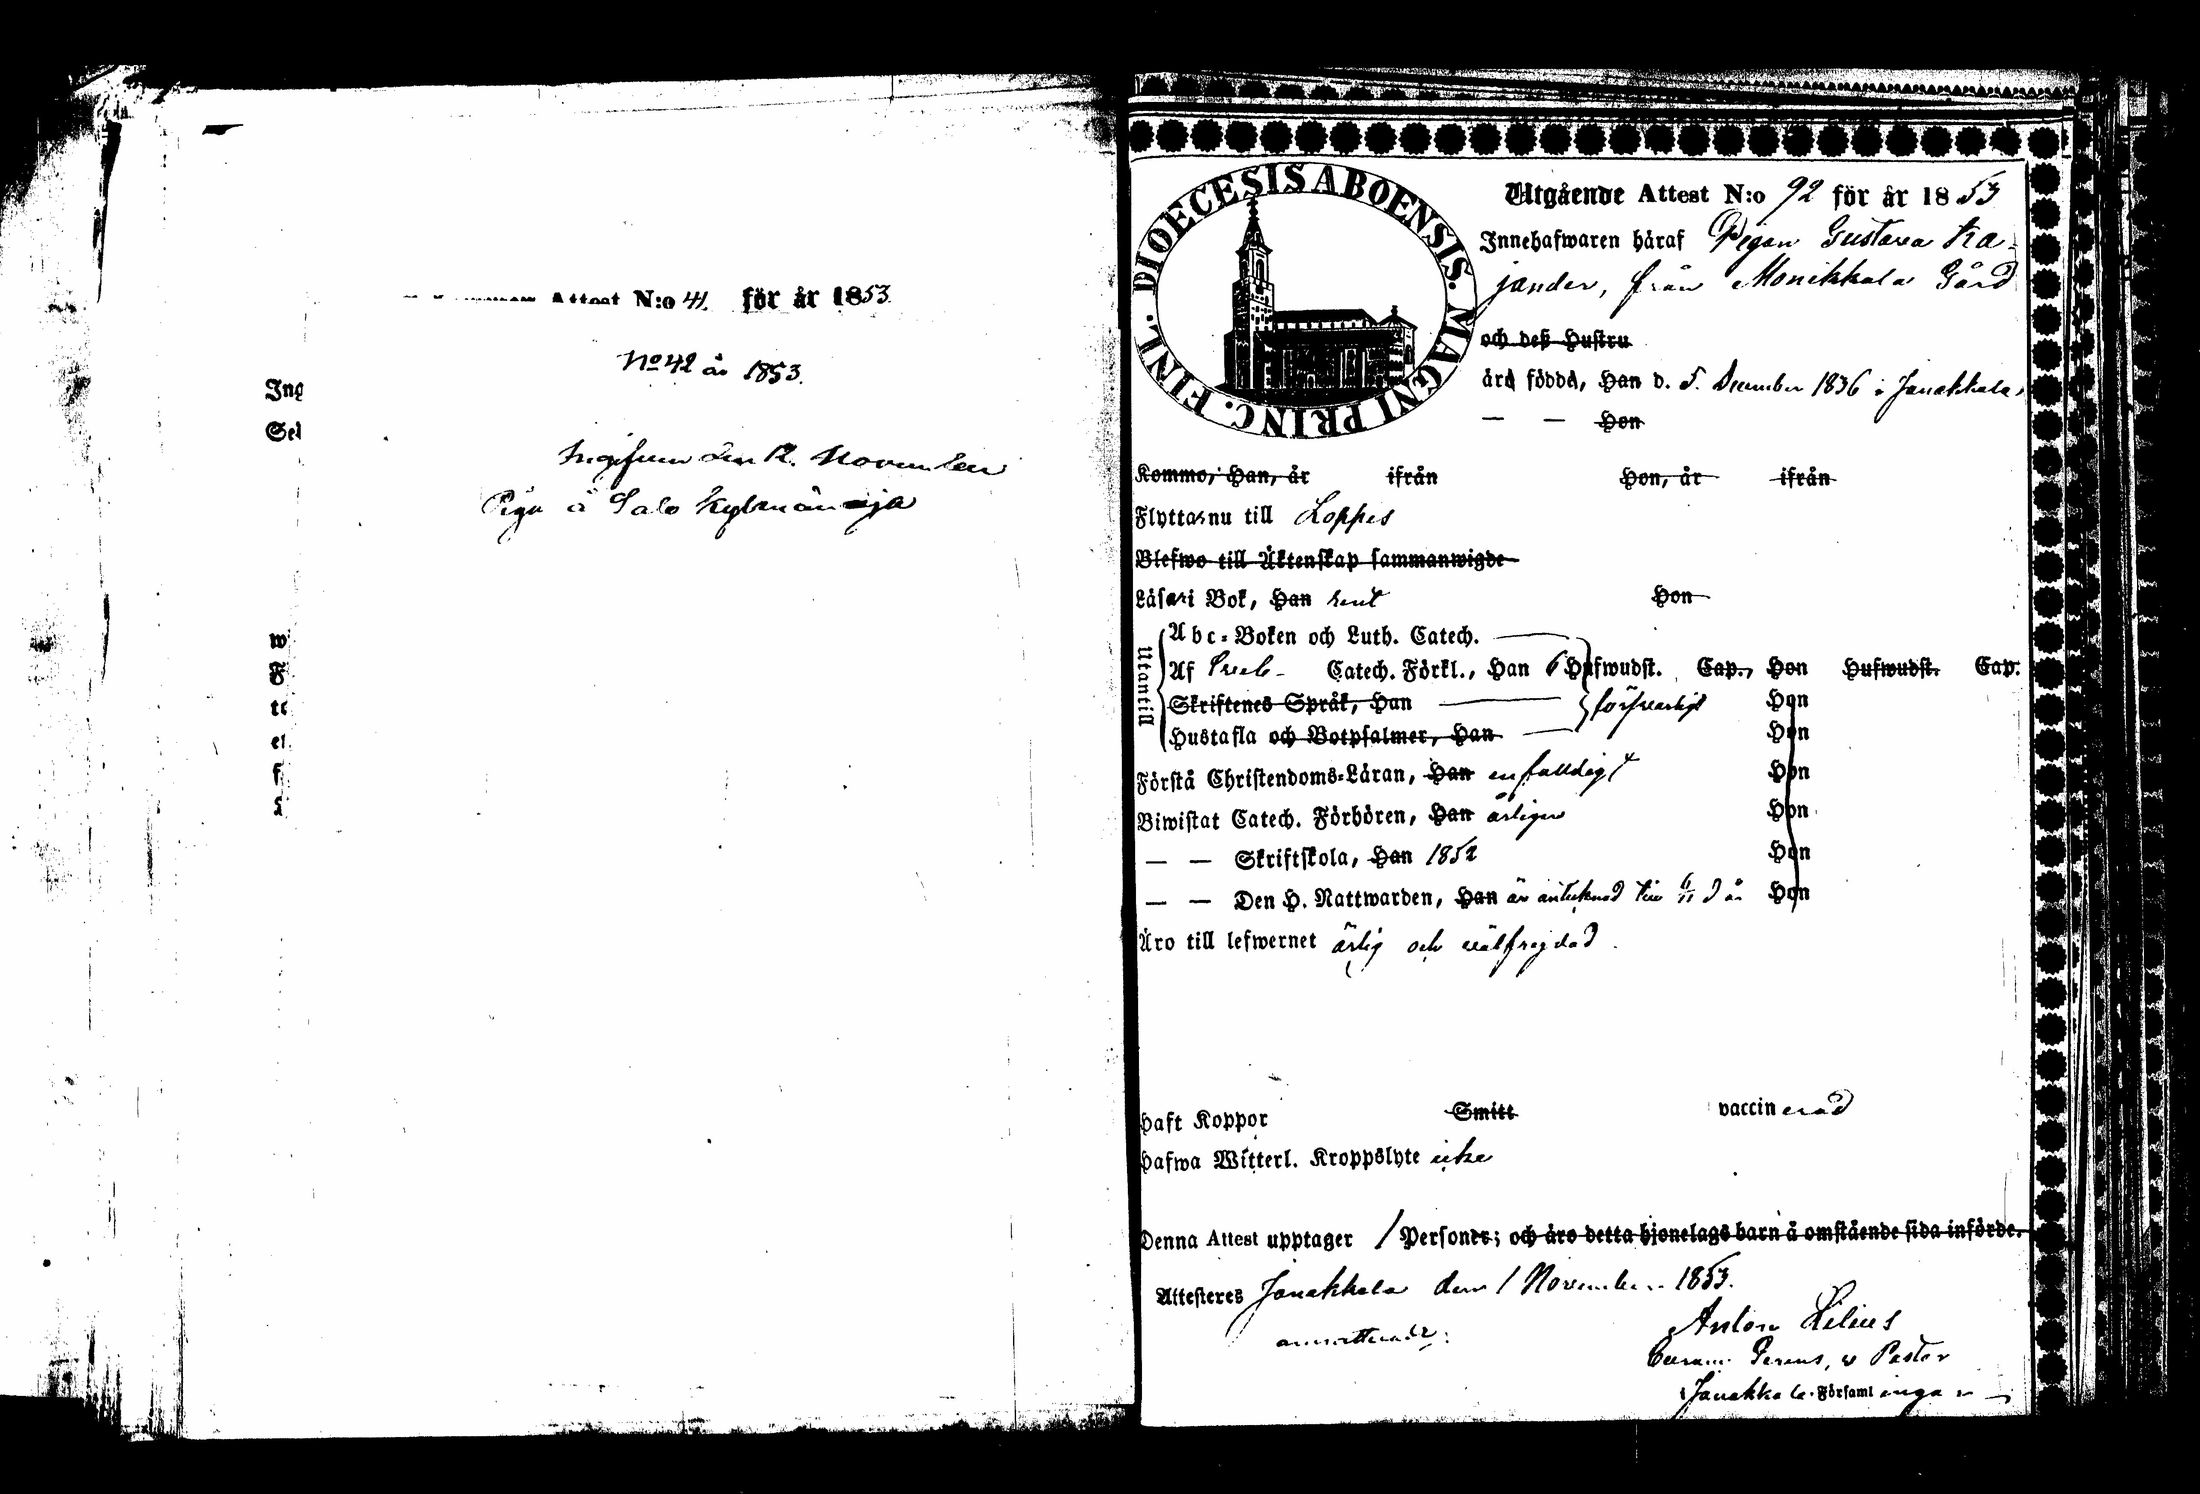 Attest N:o 41. för år 1853.
No 42 år 1853.
Ing
Sed
den 12. November
Piga å Salo Kylmänoja
w
F
te
el
f
DIOECESIS ABOENSIS. MAGNI PRINC. FINL.
Utgående Attest N:o 92 för år 1853
Innehafwaren häraf Pigan Gustava Ka-
jander, från Monikkala Gård
och deß Hustru
äro födde, Han d. 5. December 1836 i Janakkala,
— — Hon
Kommo, Han, år ifrån Hon, år ifrån
Flyttar nu till Loppis
Blefwo till Äktenskap sammanwigde
Läsa i Bok, Han rent Hon
Utantill
Abc-Boken och Luth. Catech.
Af Catech. Förkl., Han 6 Hufwudst. Cap., Hon Hufwudst. Cap.
Skriftenes Språk, Han försvarligt Hon
Hustafla och Botpsalmer, Han Hon
Förstå Christendoms-Läran, Han enfaldigt Hon
Biwistat Catech. Förhören, Han årligen Hon
— — Skriftskola, Han 1852 Hon
— — Den H. Nattwarden, Han är antecknad till 6/11 d. å. Hon
Äro till lefwernet ärlig och välfrejdad.
Haft Koppor Smitt vaccinerad
Hafwa Witterl. Kroppslyte icke
Denna Attest upptager 1 Personer; och äro detta hjonelags barn å omstående sida införde.
Attesteres Janakkala den 1 November 1853.
Anton Lilius
Gerens, v Pastor
Janakkala Församlinga